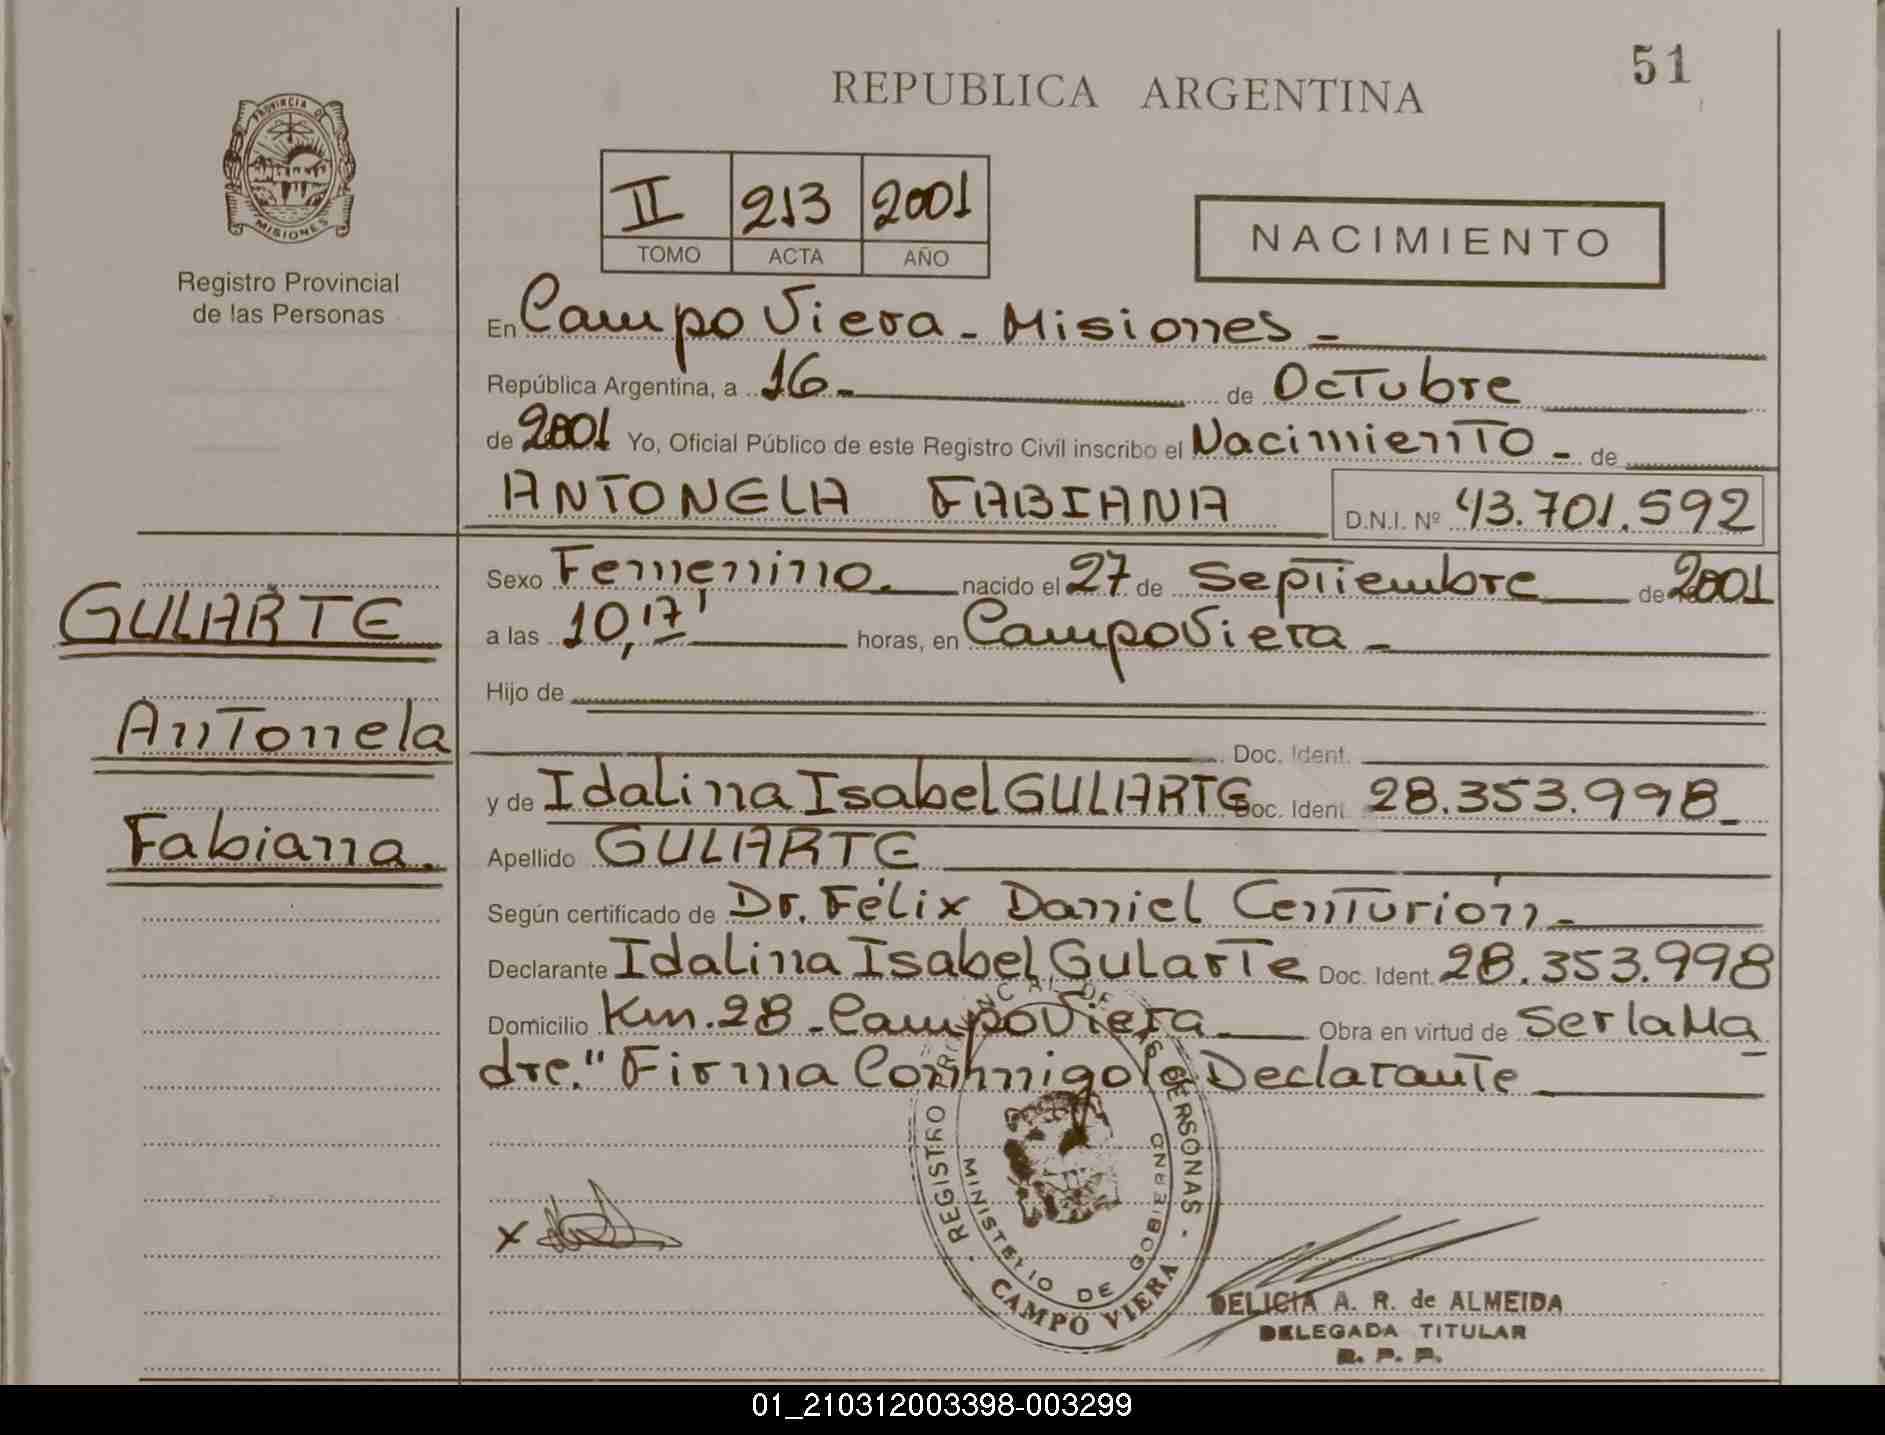 51
REPUBLICA ARGENTINA
PROVINCIA DE
MISIONES
Registro Provincial
de las Personas
II 213 2001
TOMO ACTA AÑO
NACIMIENTO
En Campo Viera - Misiones -
República Argentina, a 16 - de Octubre
de 2001 Yo, Oficial Público de este Registro Civil inscribo el Nacimiento - de
ANTONELA FABIANA D.N.I. Nº 43.701.592
Sexo Femenino. nacido el 27 de Septiembre de 2001
GULARTE
a las 10,17' horas, en Campo Viera -
Hijo de
Antonela
Doc. Ident.
y de Idalina Isabel GULARTE Doc. Ident. 28.353.998 -
Fabiana.
Apellido GULARTE
Según certificado de Dr. Félix Daniel Centurión -
Declarante Idalina Isabel Gularte Doc. Ident. 28.353.998
Domicilio Km. 28 - Campo Viera Obra en virtud de Ser la Ma
dre." Firma Conmigo la Declarante
REGISTRO PROVINCIAL DE LAS PERSONAS
MINISTERIO DE GOBIERNO
CAMPO VIERA
x
DELICIA A. R. de ALMEIDA
DELEGADA TITULAR
R. P. P.
01_210312003398-003299